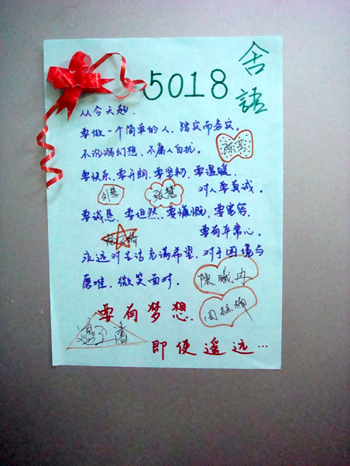 5018 舍語
从今天起.
要做一个简单的人，踏实而务实.
不沉溺幻想，不庸人自扰.
要快乐，要开朗，要坚韧，要温暖.
对人要真诚.
要诚恳，要坦然，要慷慨，要宽容.
要有平常心.
永远对生活充满希望，对于困境与
磨难，微笑面对.
要有梦想.
即便遥远…